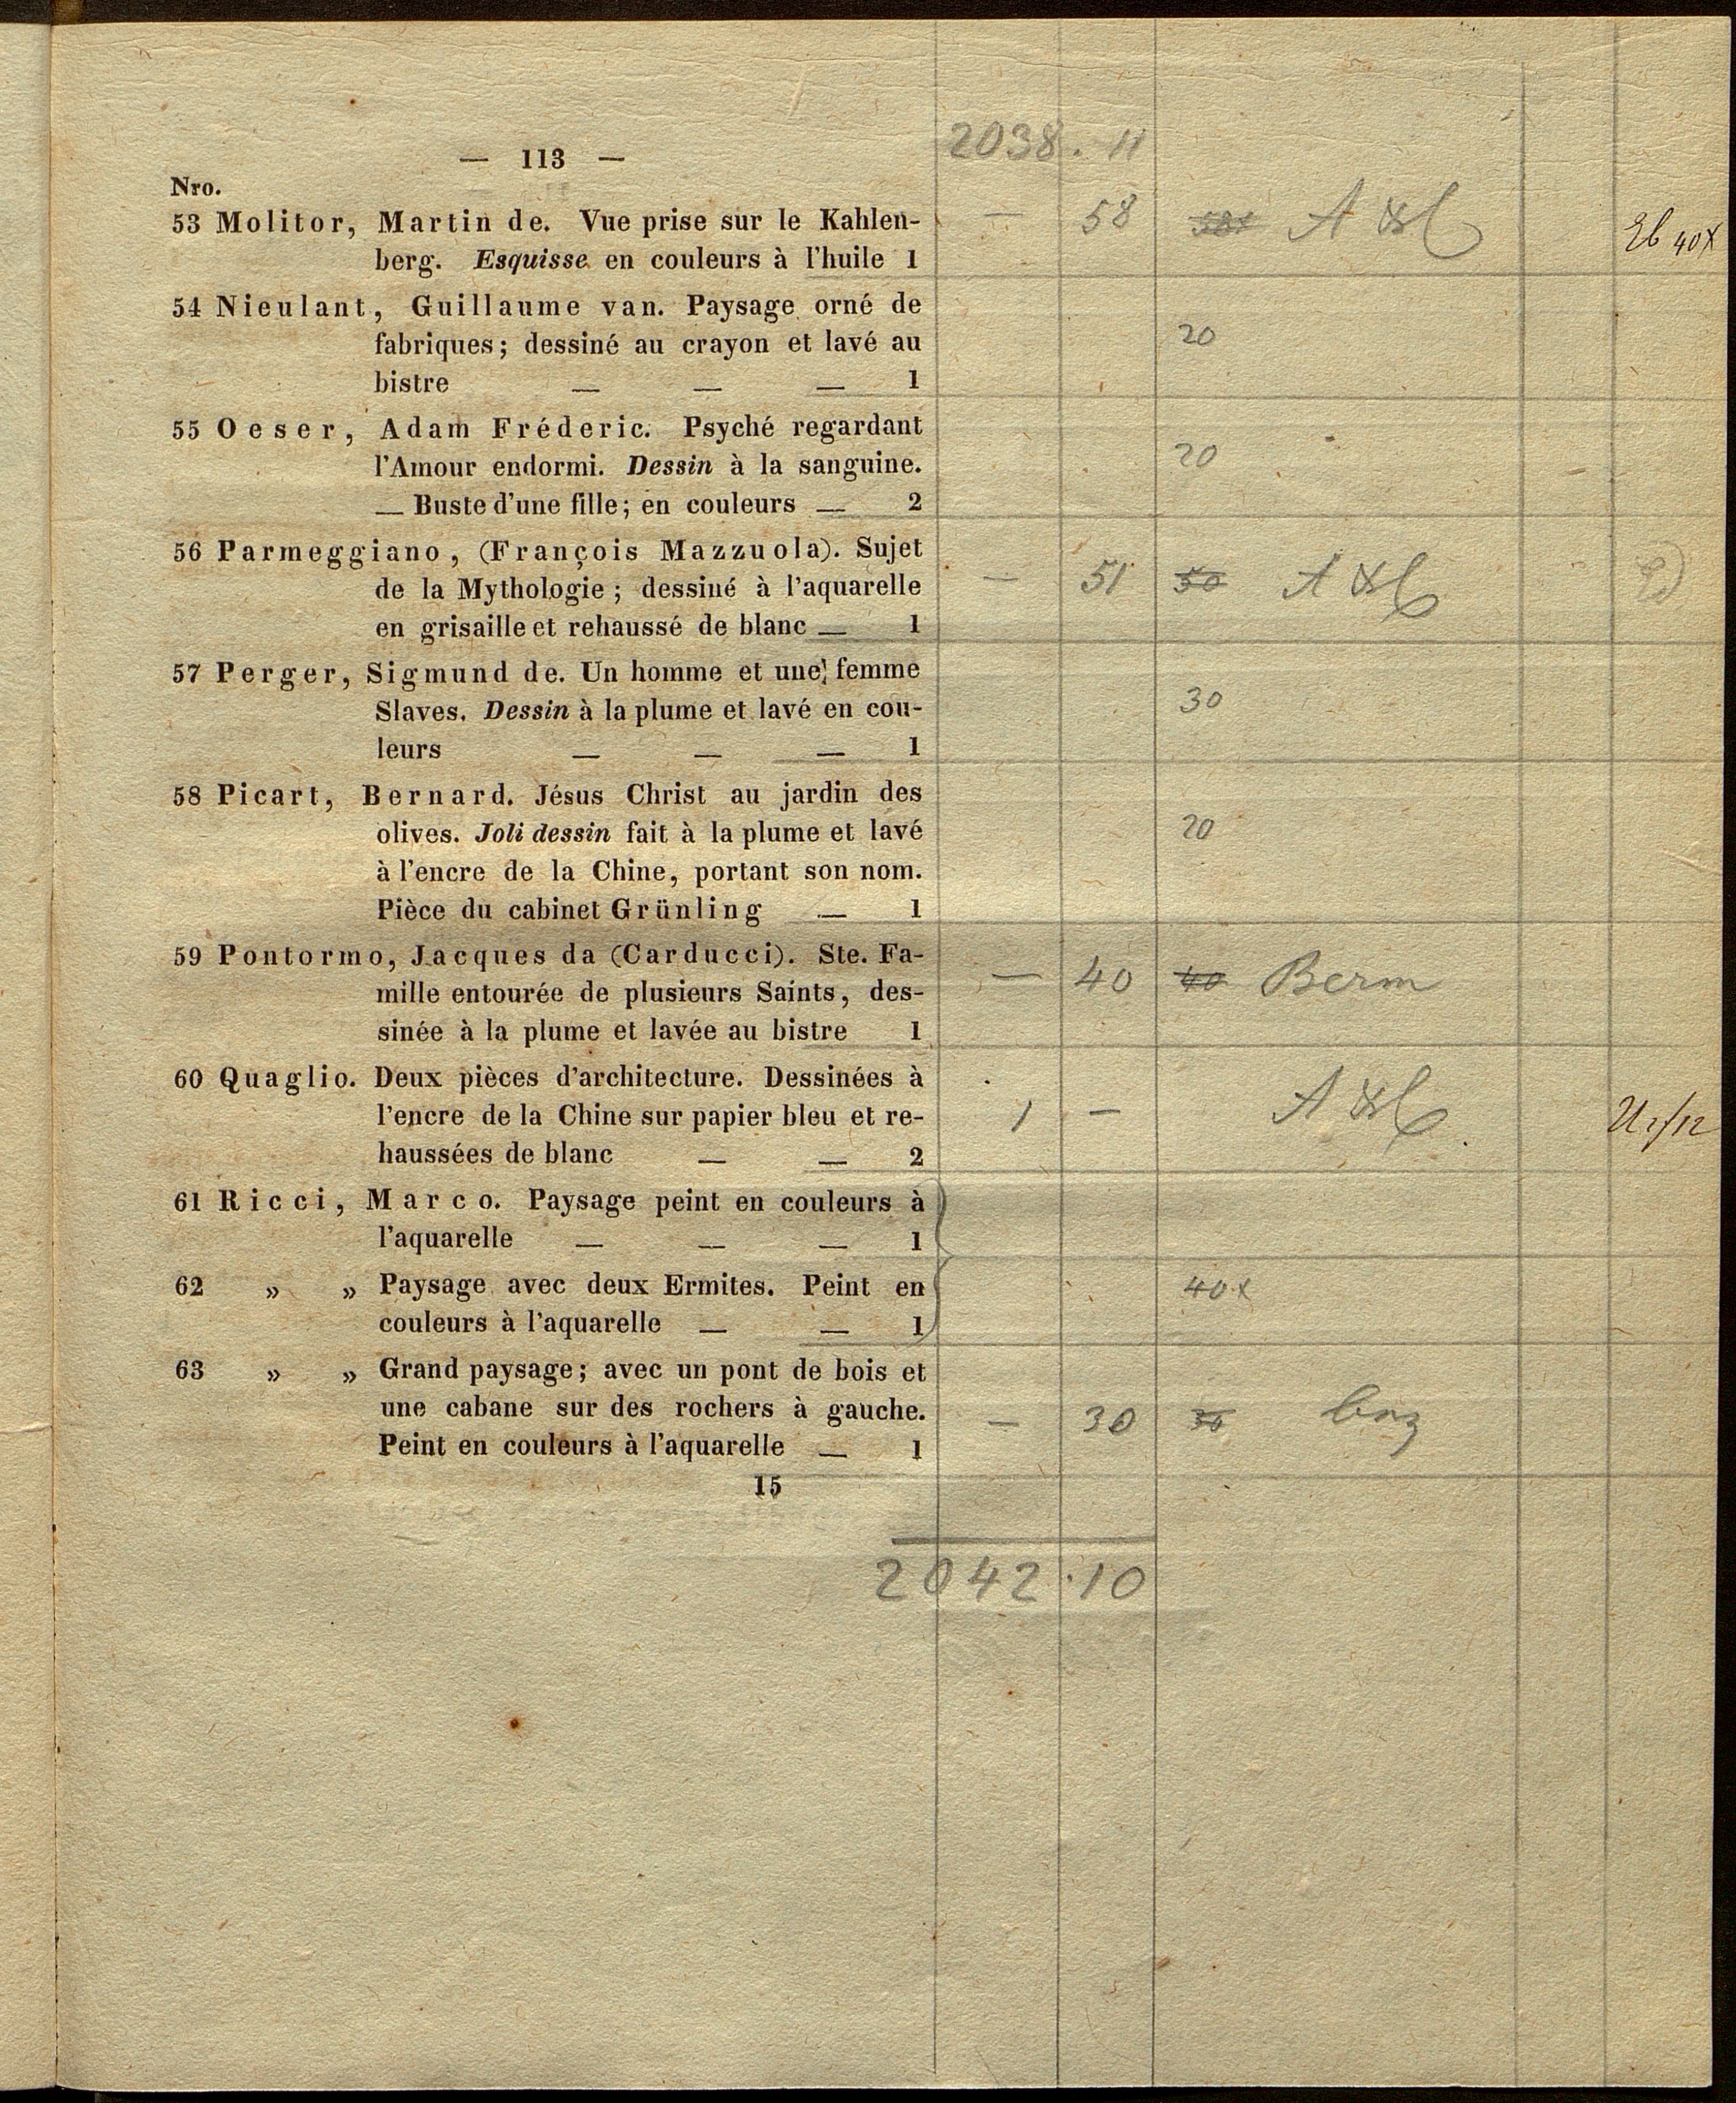 2038 . 11
— 113 —
Nro.
53 Molitor, Martin de. Vue prise sur le Kahlen- — 58
berg. Esquisse en couleurs à l'huile 1 40x
54 Nieulant, Guillaume van. Paysage orné de
fabriques; dessiné au crayon et lavé au 20
bistre — — — 1
55 Oeser, Adam Fréderic. Psyché regardant
l'Amour endormi. Dessin à la sanguine. 20
— Buste d'une fille; en couleurs — 2
56 Parmeggiano, (François Mazzuola). Sujet
de la Mythologie; dessiné à l'aquarelle — 51 50
en grisaille et rehaussé de blanc — 1
57 Perger, Sigmund de. Un homme et une femme
Slaves. Dessin à la plume et lavé en cou- 30
leurs — — — 1
58 Picart, Bernard. Jésus Christ au jardin des
olives. Joli dessin fait à la plume et lavé 20
à l'encre de la Chine, portant son nom.
Pièce du cabinet Grünling — 1
59 Pontormo, Jacques da (Carducci). Ste. Fa-
mille entourée de plusieurs Saints, des- — 40 40 Berm
sinée à la plume et lavée au bistre 1
60 Quaglio. Deux pièces d'architecture. Dessinées à
l'encre de la Chine sur papier bleu et re- 1 —
haussées de blanc — — 2
61 Ricci, Marco. Paysage peint en couleurs à
l'aquarelle — — — 1
62 » » Paysage avec deux Ermites. Peint en 40x
couleurs à l'aquarelle — — 1
63 » » Grand paysage; avec un pont de bois et
une cabane sur des rochers à gauche. — 30 30
Peint en couleurs à l'aquarelle — 1
15
2042 . 10